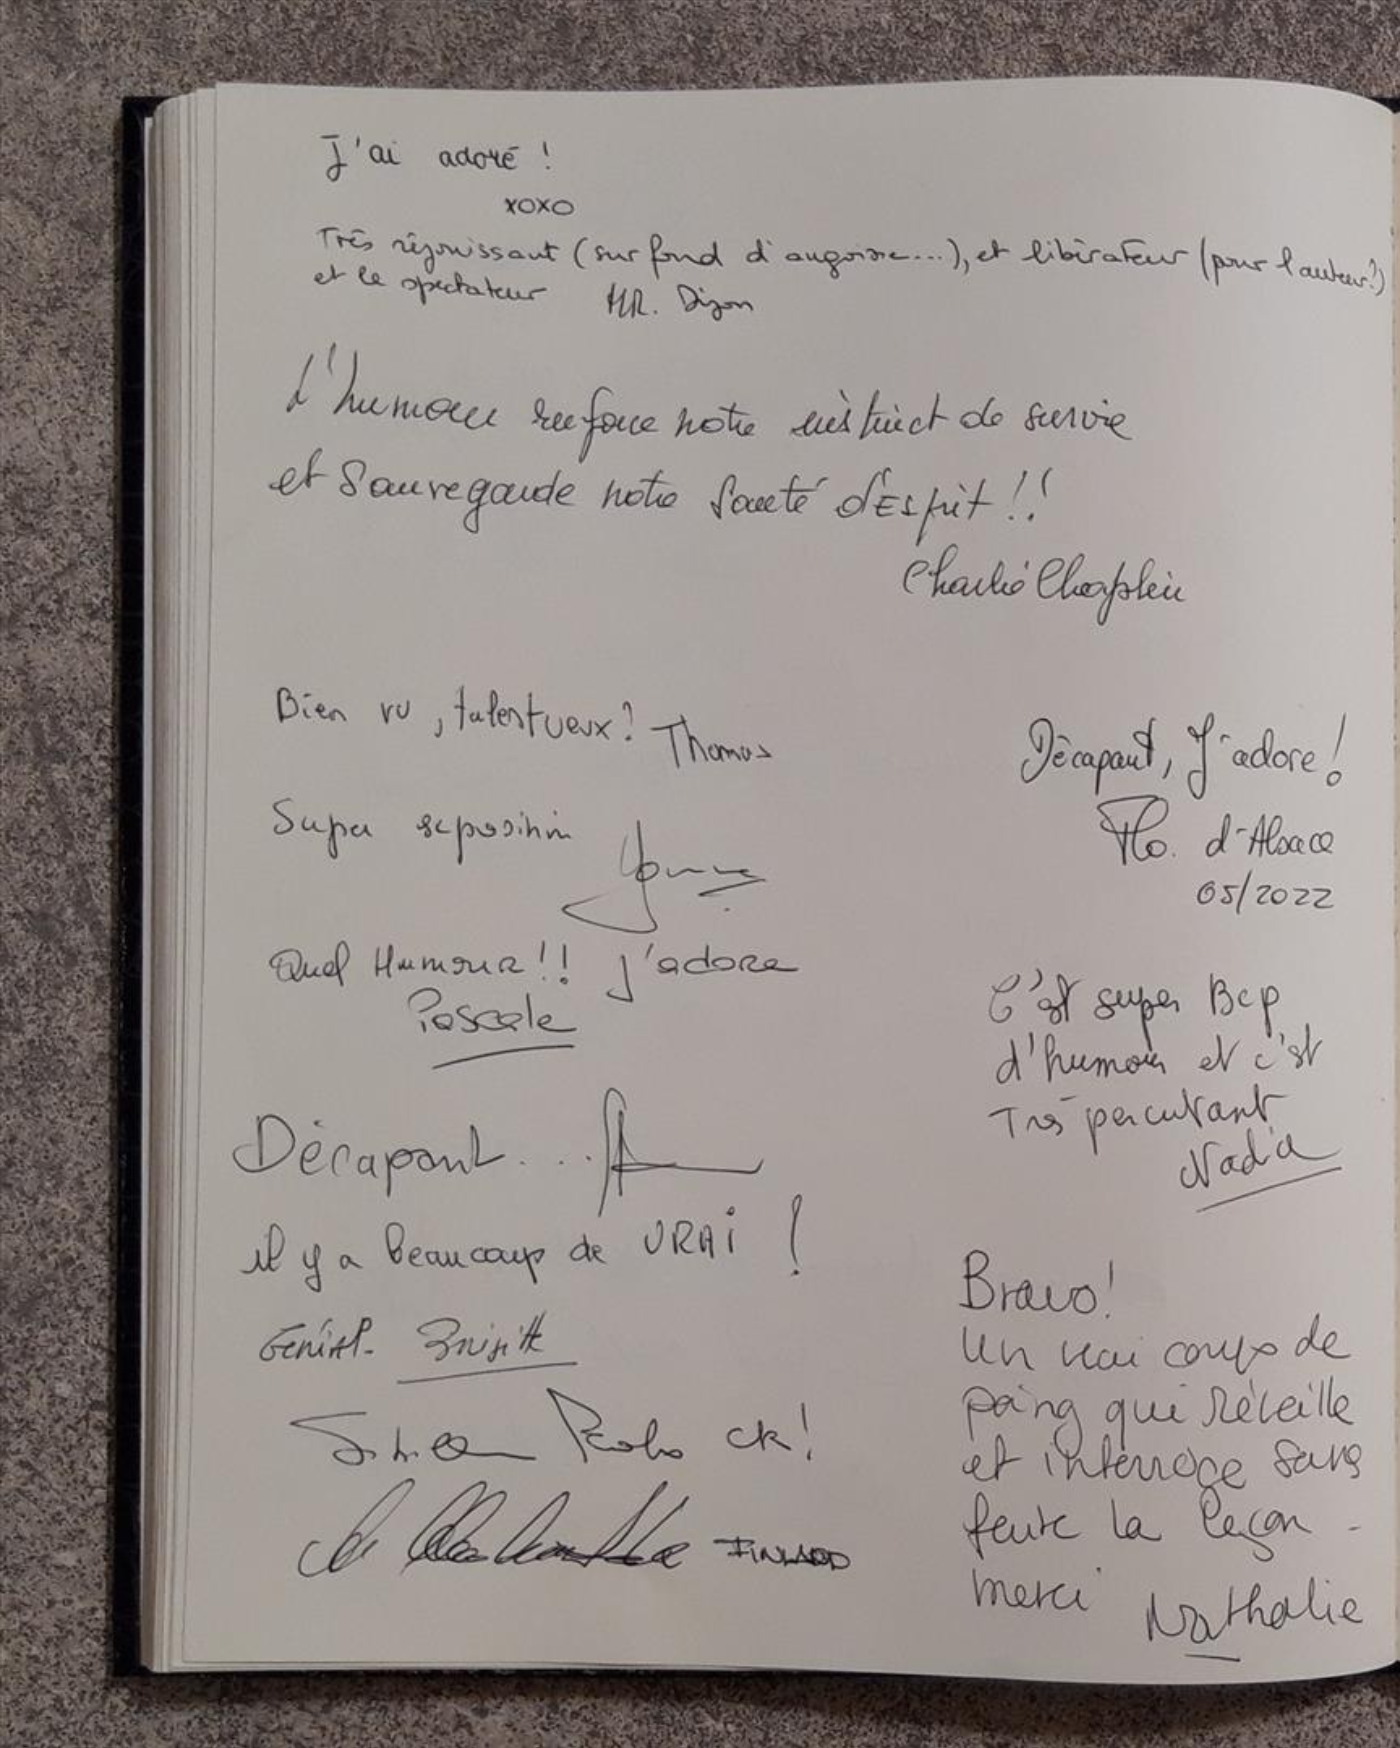 J'ai adoré !
XOXO
Très réjouissant (sur fond d'angoisse...), et libérateur (pour l'auteur?)
et le spectateur HR. Dijon
L'humour renforce notre instinct de survie
et Sauvegarde notre Santé d'Esprit !!
Charlie Chaplin
Bien vu, talentueux ! Thomas
Super exposition
Quel Humour !! J'adore
Pascale
Décapant...
il y a beaucoup de VRAI !
Génial. Brigitte
ok !
FINLAND
Décapant, J'adore !
Flo. d'Alsace
05/2022
C'est super Bcp
d'humour et c'est
Très percutant
Nadia
Bravo!
Un vrai coup de
poing qui réveille
et interroge sans
faire la leçon -
merci Nathalie